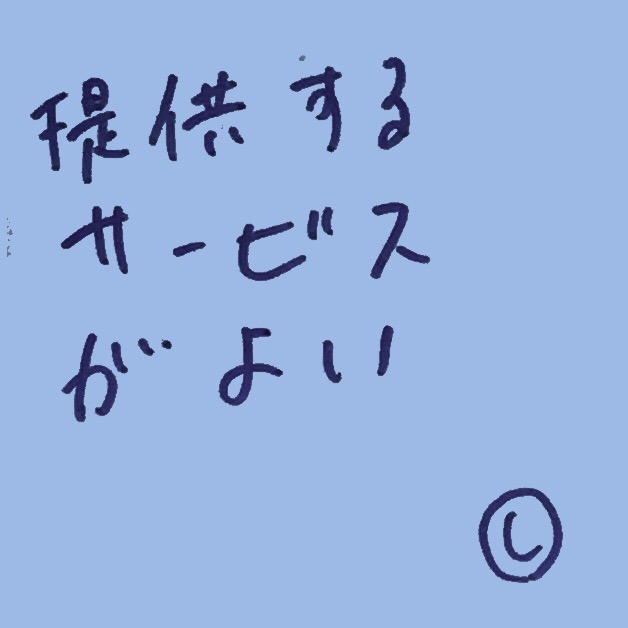 提供する
サービス
がよい
Ⓛ